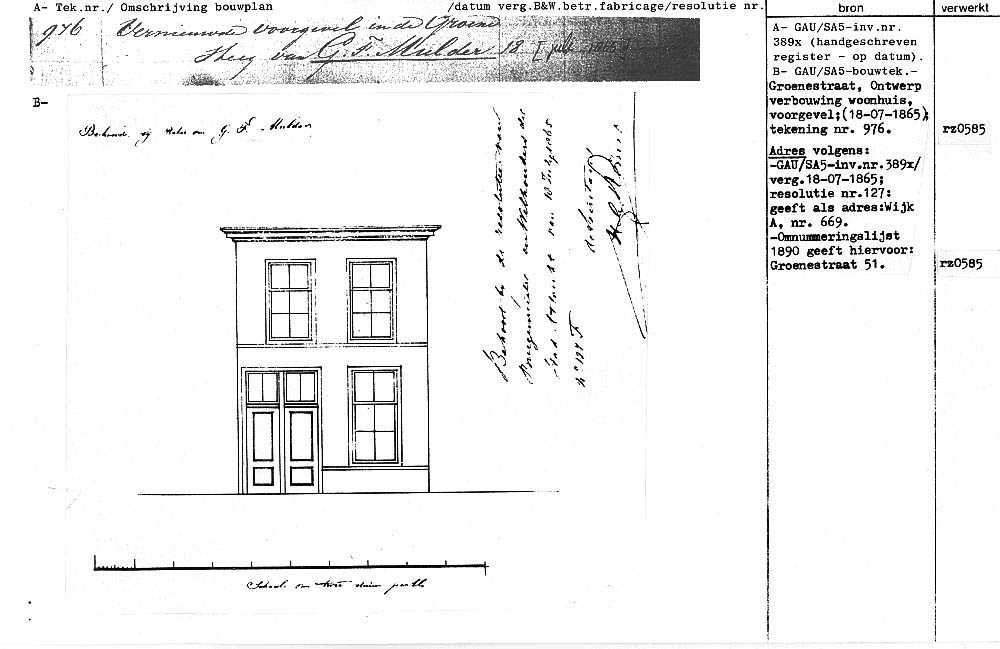 A- Tek.nr./ Omschrijving bouwplan /datum verg.B&W.betr.fabricage/resolutie nr.
bron
verwerkt
976 Vernieuwde voorgevel in de Groene
Steeg van G. F. Mulder 18 juli 1865
A- GAU/SA5-inv.nr.
389x (handgeschreven
register - op datum).
B- GAU/SA5-bouwtek.-
Groenestraat, Ontwerp
verbouwing woonhuis,
voorgevel;(18-07-1865);
tekening nr. 976.
rz0585
Adres volgens:
-GAU/SA5-inv.nr.389x/
verg.18-07-1865;
resolutie nr.127:
geeft als adres:Wijk
A, nr. 669.
-Omnummeringalijst
1890 geeft hiervoor:
Groenestraat 51.
rz0585
B-
G. F. Mulder
Behoord bij de resolutie van
Burgemeester en Wethouders der
Stad Utrecht van 18 July 1865
N° 127 F
de Secretaris
Schaal van twee duim